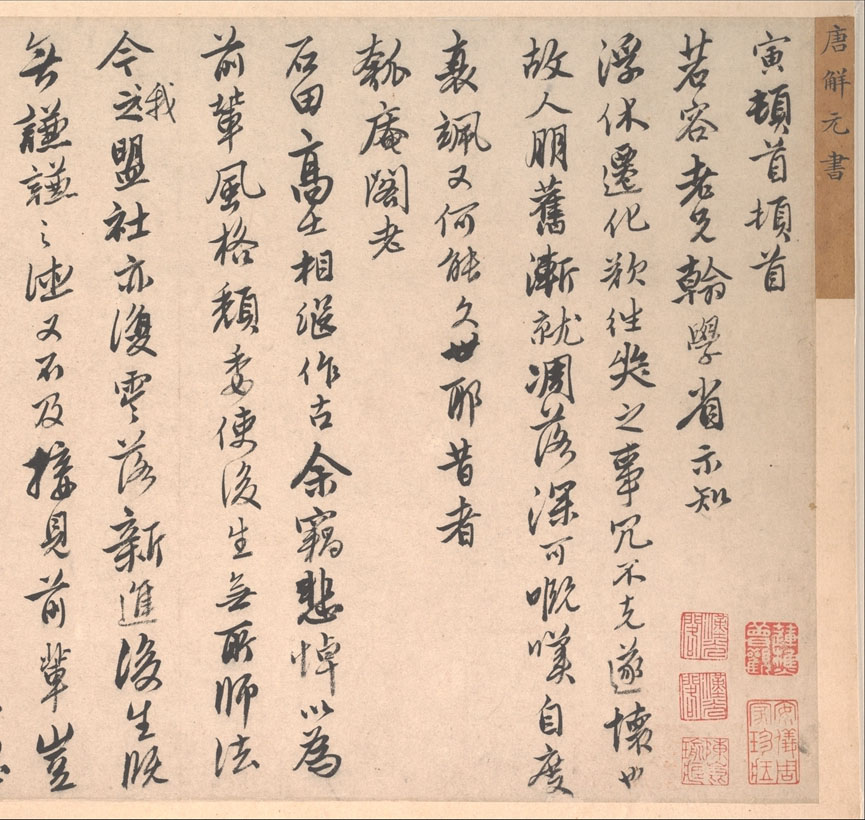 唐解元書
寅頓首頓首
若容老兄翰學省示知
浮休遷化欲往奠之事冗不克遂懷也
故人朋舊漸就凋落深可嘅嘆自度
衰颯又何能久世耶昔者
瓠庵閣老
石田高士相繼作古余竊悲悼以為
前輩風格頹委使後生無所師法
今我之盟社亦復零落新進後生既
無謙謙之德又不及接見前輩豈